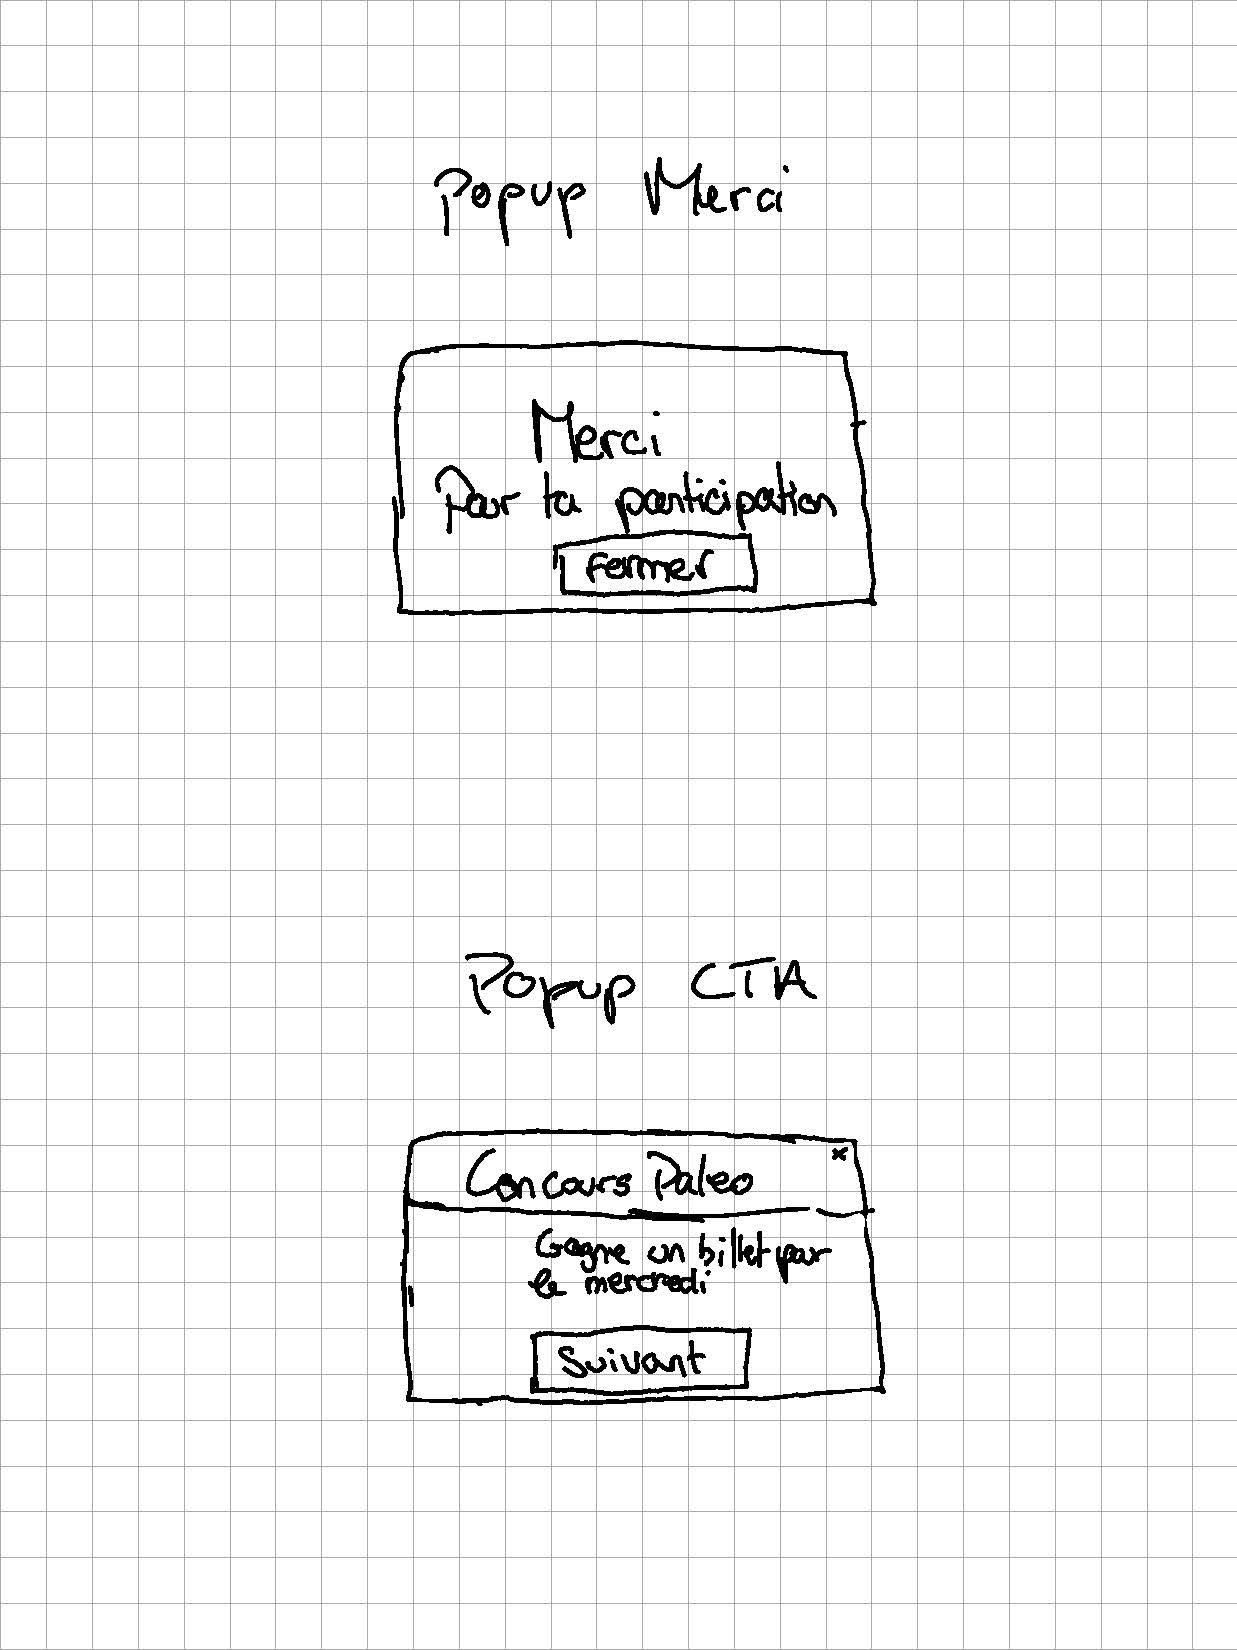 Popup Merci
Merci
Pour ta participation
Fermer
Popup CTA
Concours Paleo
x
Gagne un billet pour
le mercredi
Suivant